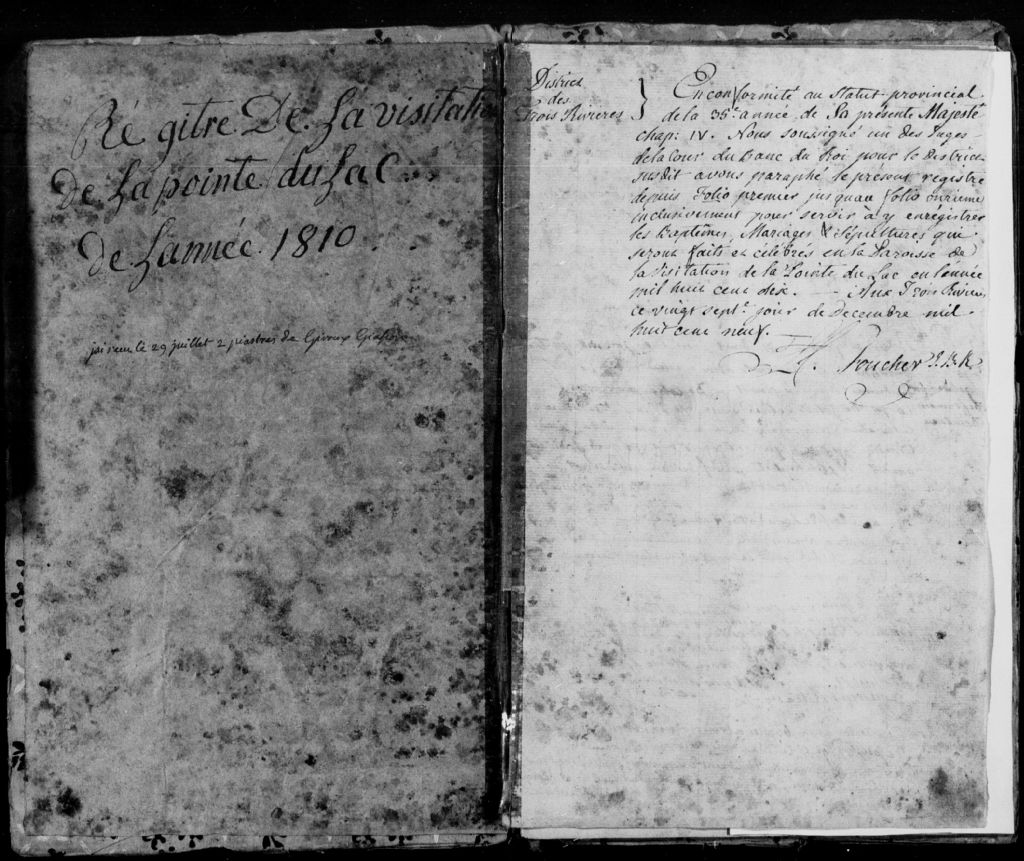 Ré gitre De La visitati
De La pointe du Lac
De Lannéé 1810
jai recu le 29 juillet 2 piastres de
District
des
Trois Rivieres
En conformité au Statut provincial
de la 35e année de Sa présente Majesté
chap: IV. Nous soussigné un des Juges
de la Cour du Banc du Roi pour le District
susdit avons paraphé le présent registre
depuis Folio premier jusquau folio onzieme
inclusivement pour servir à y enrégistrer
les Baptêmes, Mariages & Sépultures qui
seront faits et célébrés en la Paroisse de
la Visitation de la Pointe du Lac en l'année
mil huit cent dix. — Aux Trois Rivieres
ce vingt sept. jour de Decembre mil
huit cent neuf.
L. Foucher J.B.R.